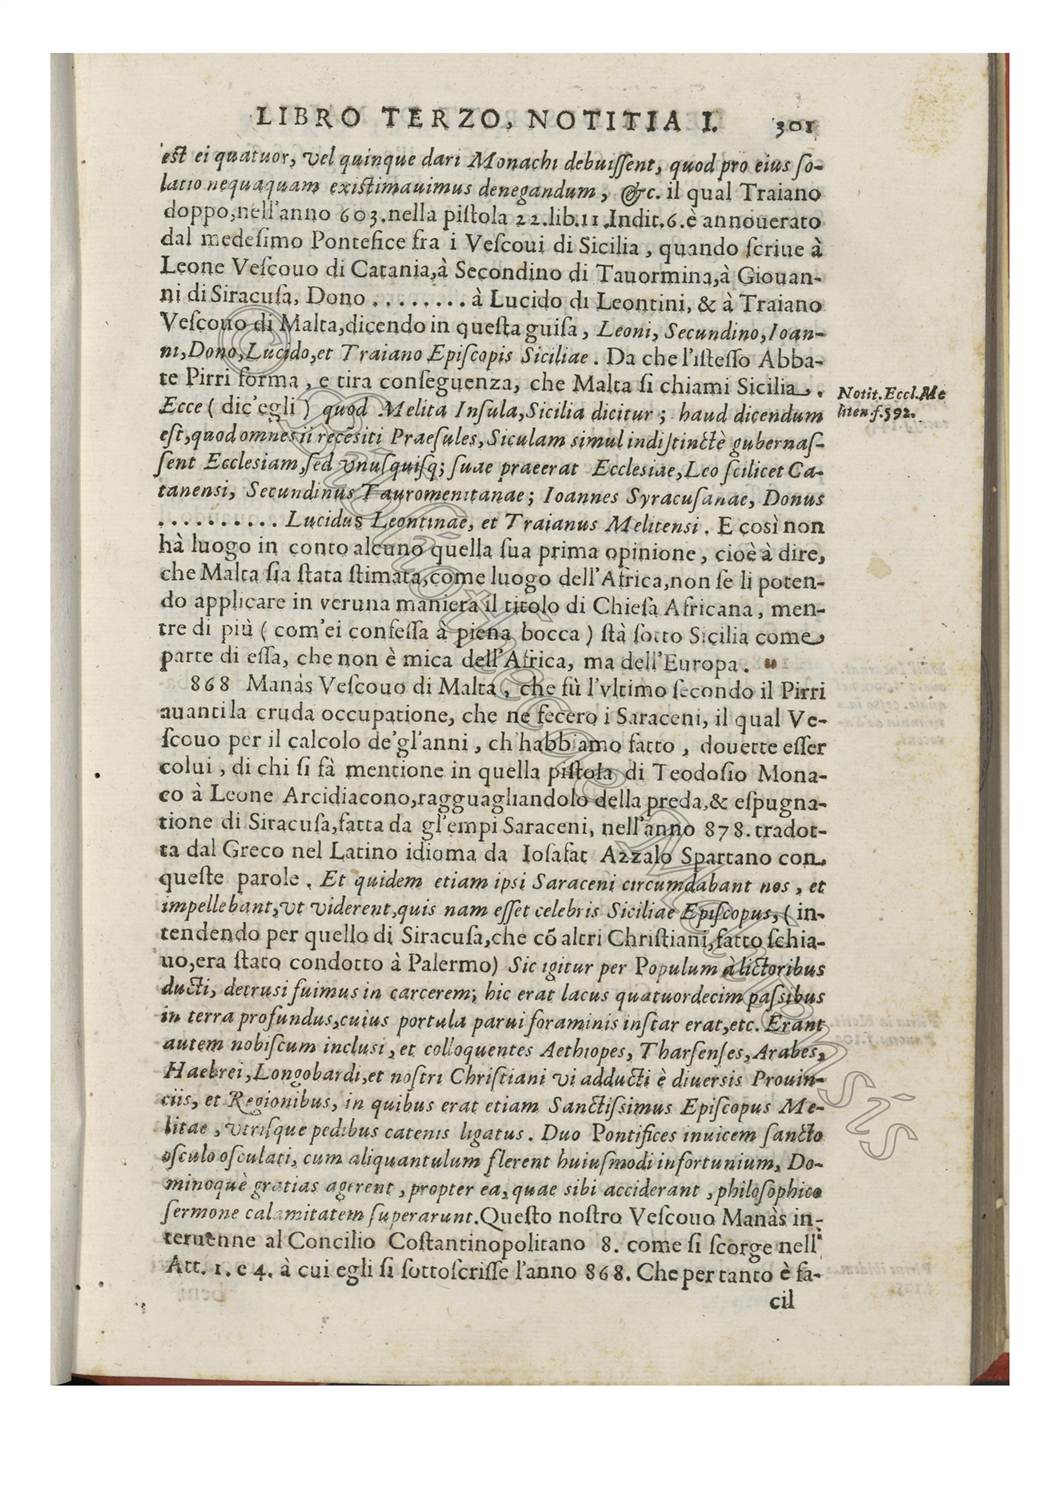 LIBRO TERZO, NOTITIA I. 301
est ei quatuor, vel quinque dari Monachi debuissent, quod pro eius so-
latio nequaquam existimauimus denegandum, &c. il qual Traiano
doppo,nell'anno 603.nella pistola 22.lib.11.Indit.6.è annouerato
dal medesimo Pontefice fra i Vescoui di Sicilia, quando scriue à
Leone Vescouo di Catania,à Secondino di Tauormina,à Giouan-
ni di Siracusa, Dono . . . . . . . . à Lucido di Leontini, & à Traiano
Vescouo di Malta,dicendo in questa guisa, Leoni, Secundino,Ioan-
ni,Dono,Lucido,et Traiano Episcopis Siciliae. Da che l'istesso Abba-
te Pirri forma, e tira conseguenza, che Malta si chiami Sicilia.
Notit.Eccl.Me
liten.f.592.
Ecce ( dic'egli ) quod Melita Insula,Sicilia dicitur; haud dicendum
est,quod omnes ii recēsiti Praesules,Siculam simul indistinctè gubernas-
sent Ecclesiam,sed vnusquisq; suae praeerat Ecclesiae,Leo scilicet Ca-
tanensi, Secundinus Tauromenitanae; Ioannes Syracusanae, Donus
. . . . . . . . . . Lucidus Leontinae, et Traianus Melitensi. E così non
hà luogo in conto alcuno quella sua prima opinione, cioè à dire,
che Malta sia stata stimata,come luogo dell'Africa,non se li poten-
do applicare in veruna maniera il titolo di Chiesa Africana, men-
tre di più ( com'ei confessa à piena bocca ) stà sotto Sicilia come
parte di essa, che non è mica dell'Africa, ma dell'Europa.
868 Manàs Vescouo di Malta, che fù l'vltimo secondo il Pirri
auanti la cruda occupatione, che ne fecero i Saraceni, il qual Ve-
scouo per il calcolo de'gl'anni, ch'habbiamo fatto, douette esser
colui, di chi si fà mentione in quella pistola di Teodosio Mona-
co à Leone Arcidiacono,ragguagliandolo della preda,& espugna-
tione di Siracusa,fatta da gl'empi Saraceni, nell'anno 878.tradot-
ta dal Greco nel Latino idioma da Iosafat Azzalo Spartano con
queste parole. Et quidem etiam ipsi Saraceni circumdabant nos, et
impellebant,vt viderent,quis nam esset celebris Siciliae Episcopus,( in-
tendendo per quello di Siracusa,che cō altri Christiani,fatto schia-
uo,era stato condotto à Palermo) Sic igitur per Populum à lictoribus
ducti, detrusi fuimus in carcerem; hic erat lacus quatuordecim passibus
in terra profundus,cuius portula parui foraminis instar erat,etc. Erant
autem nobiscum inclusi, et colloquentes Aethiopes, Tharsenses,Arabes,
Haebrei,Longobardi,et nostri Christiani vi adducti è diuersis Prouin-
ciis, et Regionibus, in quibus erat etiam Sanctissimus Episcopus Me-
litae, vtrisque pedibus catenis ligatus. Duo Pontifices inuicem sancto
osculo osculati, cum aliquantulum flerent huiusmodi infortunium, Do-
minoquè gratias agerent, propter ea, quae sibi acciderant, philosophico
sermone calamitatem superarunt.Questo nostro Vescouo Manàs in-
teruenne al Concilio Costantinopolitano 8. come si scorge nell'
Att. 1. e 4. à cui egli si sottoscrisse l'anno 868. Che per tanto è fa-
cil